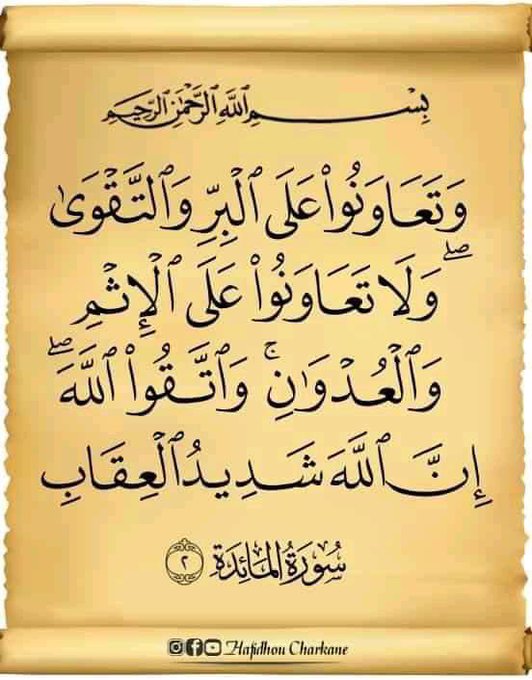 بِسْمِ ٱللَّهِ ٱلرَّحْمَٰنِ ٱلرَّحِيمِ
وَتَعَاوَنُوا۟ عَلَى ٱلْبِرِّ وَٱلتَّقْوَىٰ
ۖ وَلَا تَعَاوَنُوا۟ عَلَى ٱلْإِثْمِ
وَٱلْعُدْوَٰنِ ۚ وَٱتَّقُوا۟ ٱللَّهَ ۖ
إِنَّ ٱللَّهَ شَدِيدُ ٱلْعِقَابِ
سُورَةُ المَائِدَةِ ٢
Hafidhou Charkane